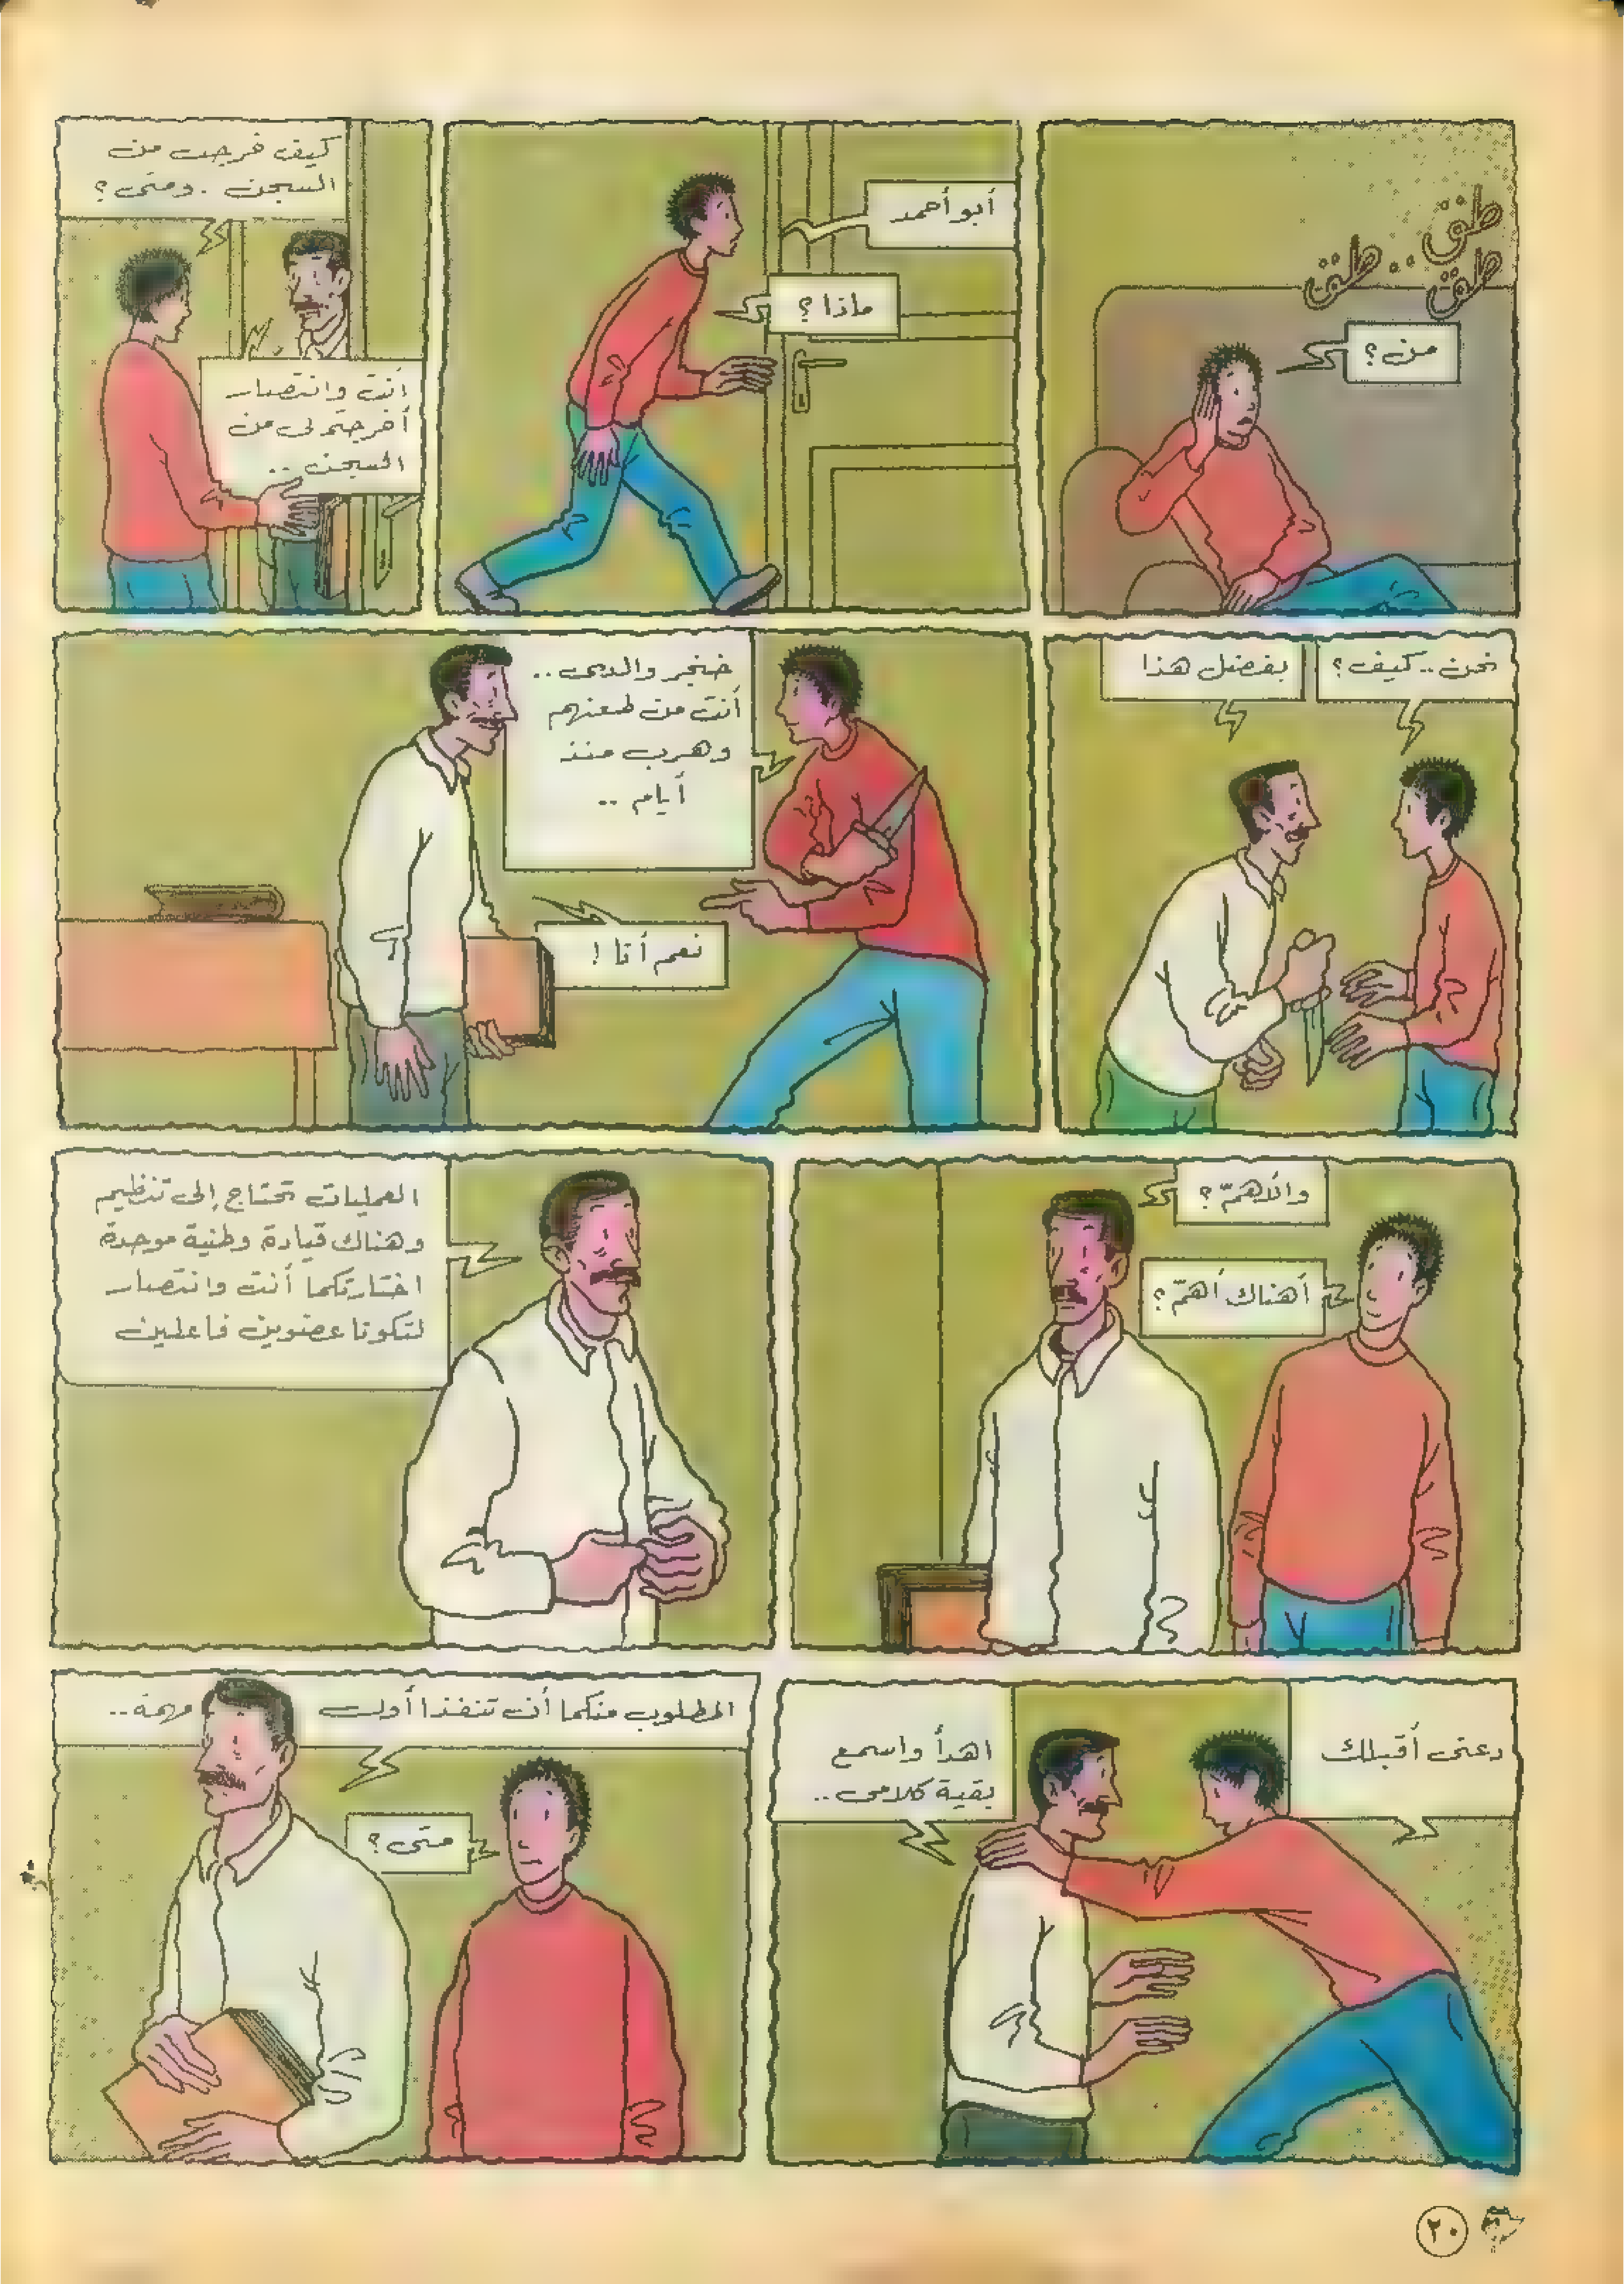 طق
طق .. طق
من؟
أبو أحمد
ماذا؟
كيف خرجت من
السجن . ومتى؟
أنت وانتصار
أخرجتمونى من
السجن ..
نحن .. كيف؟
بفضل هذا
خنجر والدى ..
أنت من طعنهم
وهرب منذ
أيام ..
نعم أنا!
والأهمّ؟
أهناك أهمّ؟
العمليات تحتاج إلى تنظيم
وهناك قيادة وطنية موحدة
اختارتكما أنت وانتصار
لتكونا عضوين فاعلين
دعنى أقبلك
اهدأ واسمع
بقية كلامى ..
المطلوب منكما أن تنفذا أول مهمة ..
متى؟
٢٠